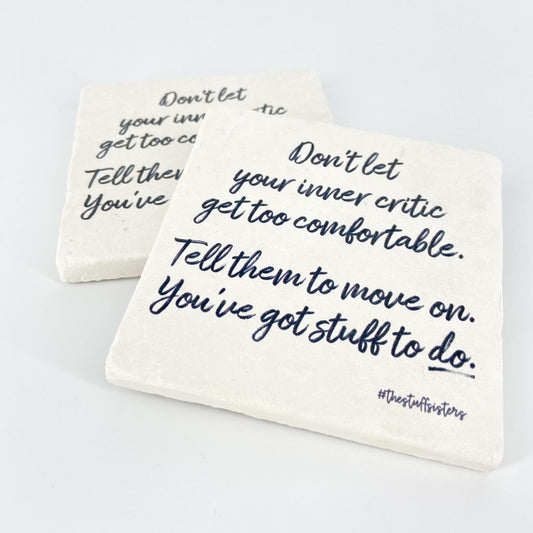 Don't let
your inner critic
get too comfortable.
Tell them
You've
Don't let
your inner critic
get too comfortable.
Tell them to move on.
You've got stuff to do.
#thestuffsisters